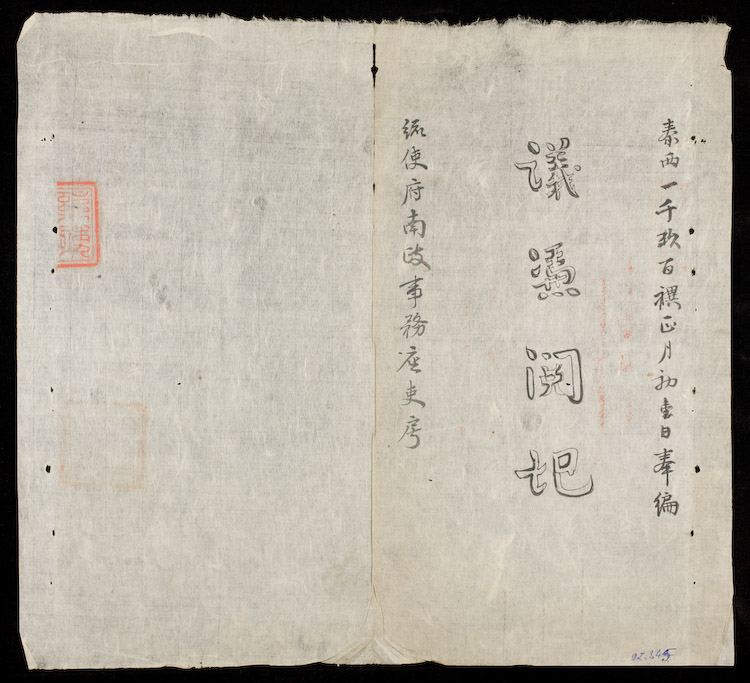 泰西一千玖百禩正月初壹日奉編
議憑閱記
統使府南政事務座吏房